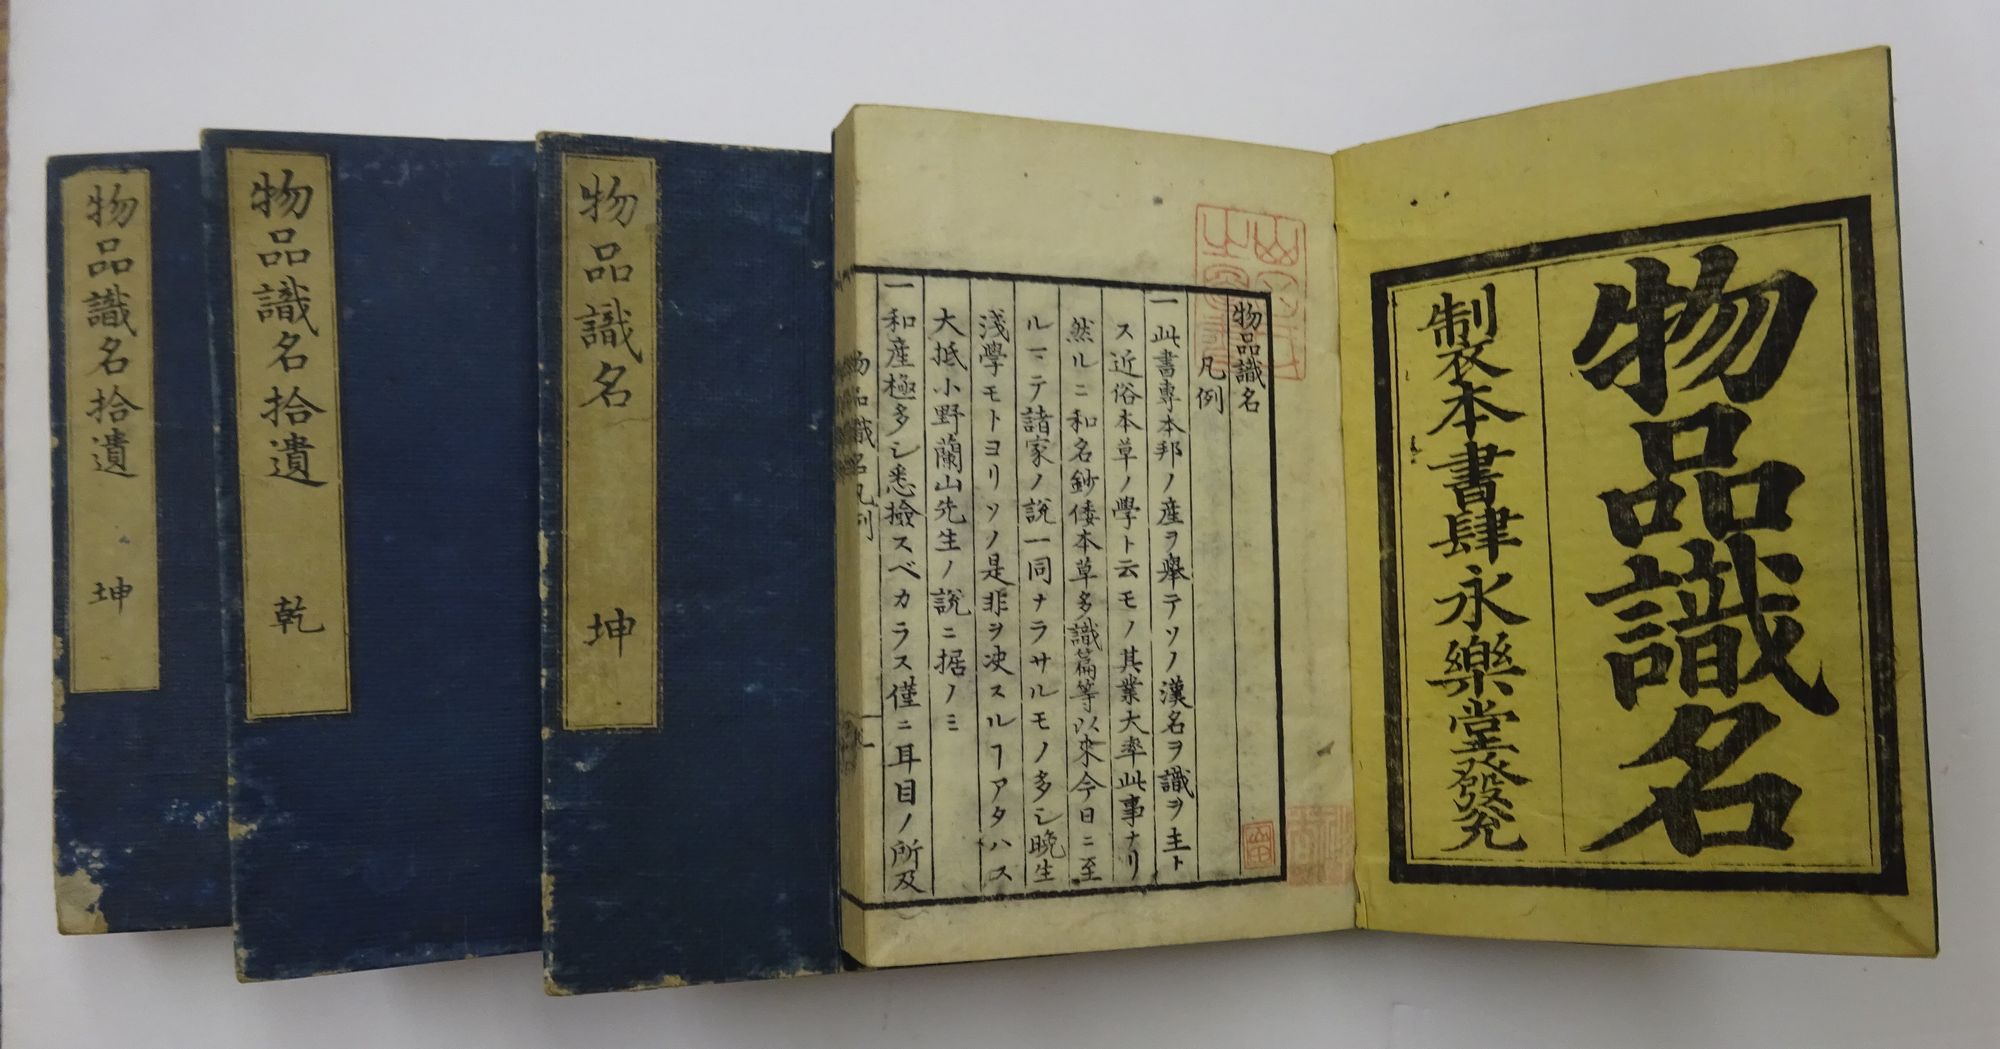 物品識名
製本書肆永樂堂發兌
物品識名
凡例
一此書專本邦ノ産ヲ擧テソノ漢名ヲ識ヲ主ト
ス近俗本草ノ學ト云モノ其業大率此事ナリ
然ルニ和名鈔倭本草多識篇等以來今日ニ至
ルマテ諸家ノ説一同ナラサルモノ多シ晩生
淺學モトヨリソノ是非ヲ决スルヿアタハス
大抵小野蘭山先生ノ説ニ据ノミ
一和産極多シ悉撿スベカラス僅ニ耳目ノ所及
物品識名凡例
物品識名 坤
物品識名拾遺 乾
物品識名拾遺 坤